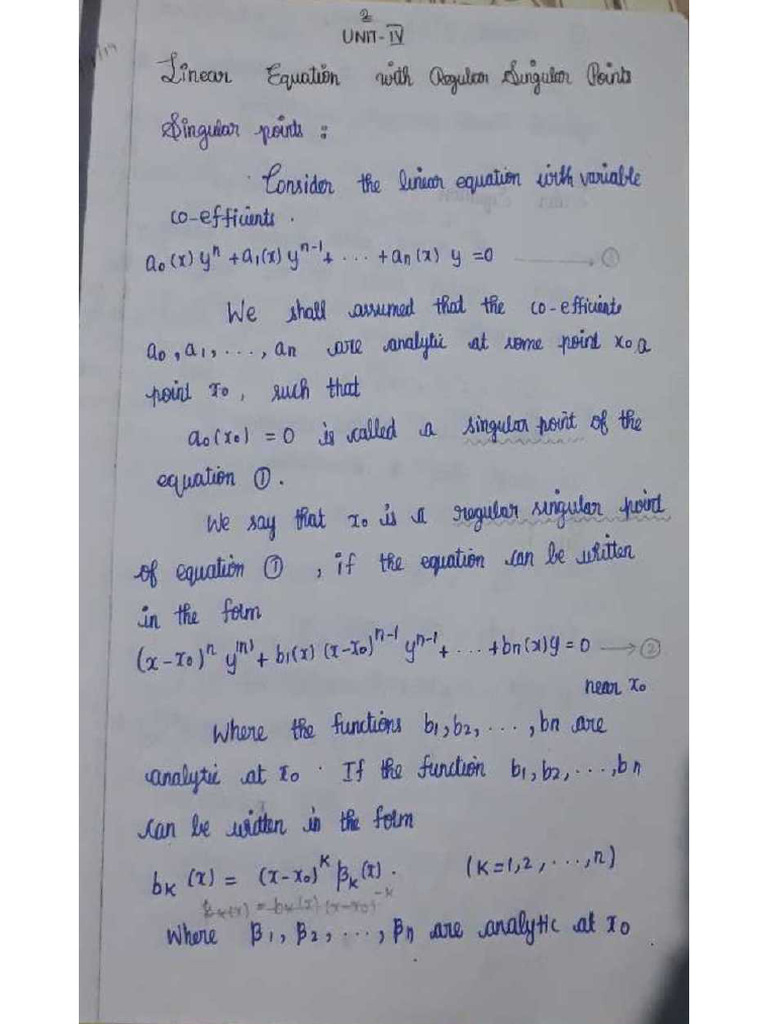 2
UNIT-IV
Linear Equation with Regular Singular Points
Singular points :
Consider the linear equation with variable
co-efficients .
a₀(x) yⁿ + a₁(x) yⁿ⁻¹ + ... + aₙ(x) y = 0 → ①
We shall assumed that the co-efficients
a₀, a₁, ..., aₙ are analytic at some point x₀, a
point x₀, such that
a₀(x₀) = 0 is called a singular point of the
equation ①.
We say that x₀ is a regular singular point
of equation ① , if the equation can be written
in the form
(x-x₀)ⁿ y⁽ⁿ⁾ + b₁(x) (x-x₀)ⁿ⁻¹ yⁿ⁻¹ + ... + bₙ(x)y = 0 → ②
near x₀
Where the functions b₁, b₂, ..., bₙ are
analytic at x₀ . If the function b₁, b₂, ..., bₙ
can be written in the form
bₖ (x) = (x-x₀)ᵏ βₖ(x). (K=1,2, ..., n)
βₖ(x) = bₖ(x) (x-x₀)⁻ᵏ
Where β₁, β₂, ..., βₙ are analytic at x₀